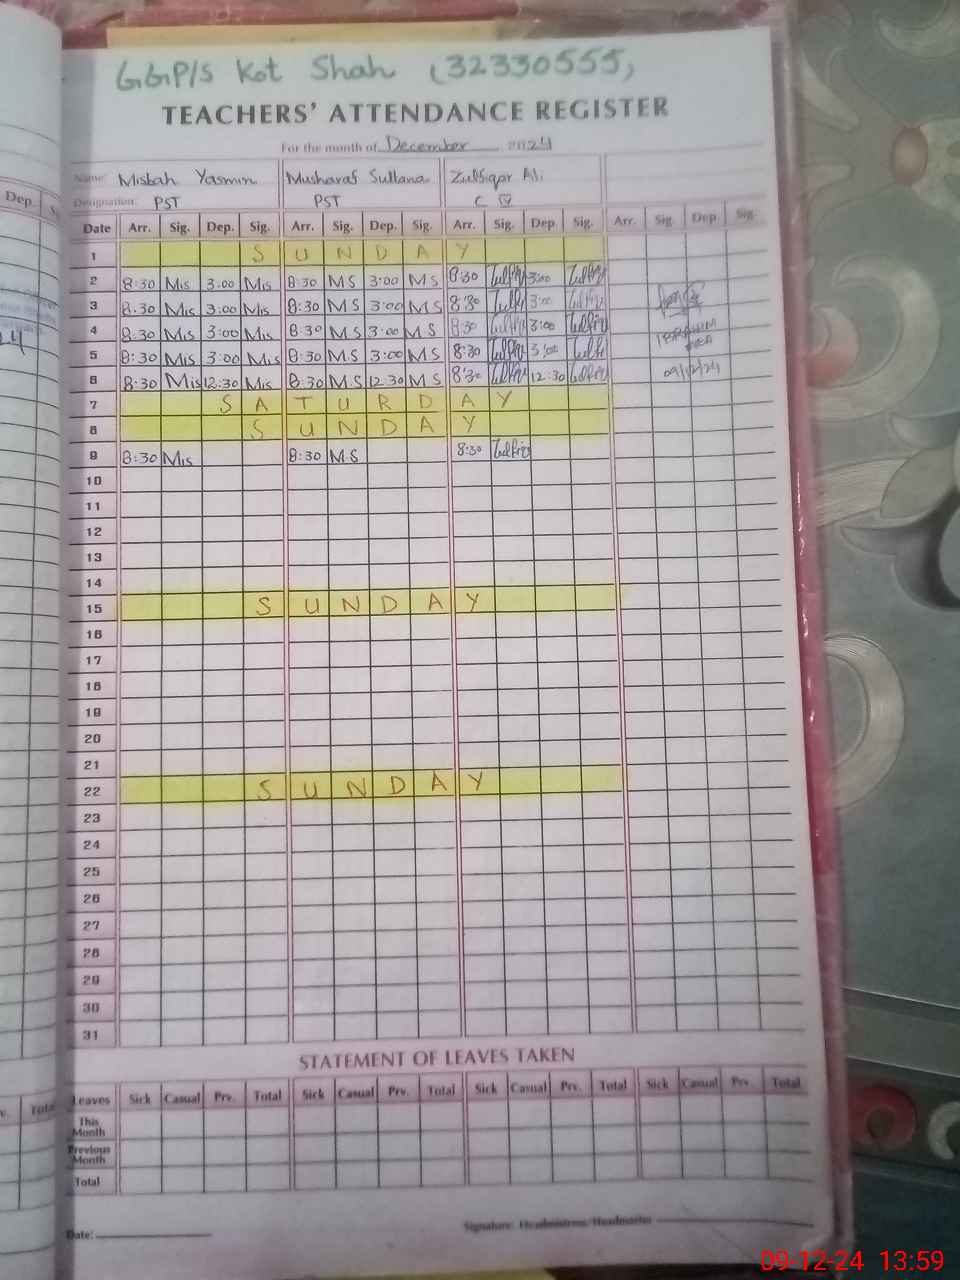 GGP/S Kot Shah (32330555)
TEACHERS' ATTENDANCE REGISTER
For the month of December 2024
Name: Misbah Yasmin Musharaf Sultana Zulfiqar Ali
Designation: PST PST C
Date Arr. Sig. Dep. Sig. Arr. Sig. Dep. Sig. Arr. Sig. Dep. Sig. Arr. Sig. Dep. Sig.
1 S U N D A Y
2 8:30 Mis 3:00 Mis 8:30 MS 3:00 MS 8:30 3:00
3 8:30 Mis 3:00 Mis 8:30 MS 3:00 MS 8:30 3:00
4 8:30 Mis 3:00 Mis 8:30 MS 3:00 MS 8:30 3:00 IBRAHIM
5 8:30 Mis 3:00 Mis 8:30 MS 3:00 MS 8:30 3:00
6 8:30 Mis 12:30 Mis 8:30 MS 12:30 MS 8:30 12:30 09/12/24
7 S A T U R D A Y
8 S U N D A Y
9 8:30 Mis 8:30 MS 8:30
10
11
12
13
14
15 S U N D A Y
16
17
18
19
20
21
22 S U N D A Y
23
24
25
26
27
28
29
30
31
STATEMENT OF LEAVES TAKEN
Leaves Sick Casual Prv. Total Sick Casual Prv. Total Sick Casual Prv. Total Sick Casual Prv. Total
This Month
Previous Month
Total
Date:
Signature: Headmistress/Headmaster
09-12-24 13:59